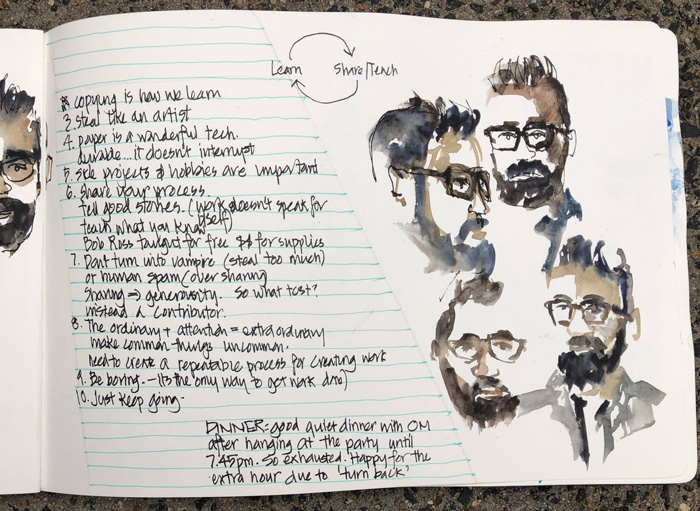 Learn Share/Teach
copying is how we learn
3. steal like an artist
4. paper is a wonderful tech.
durable...it doesn't interrupt
5. side projects & hobbies are important
6. share your process.
Tell good stories. (work doesn't speak for
itself)
teach what you know
Bob Ross taught for free $$ for supplies
7. Dont turn into vampire (steal too much)
or human spam (over sharing)
sharing => generousity. So what test?
instead a contributor.
8. The ordinary + attention = extraordinary
make common things uncommon.
need to create a repeatable process for creating work
9. Be boring. - its the only way to get work done)
10. Just keep going-
DINNER: good quiet dinner with OM
after hanging at the party until
7.45pm. So exhausted. Happy for the
extra hour due to 'turn back'